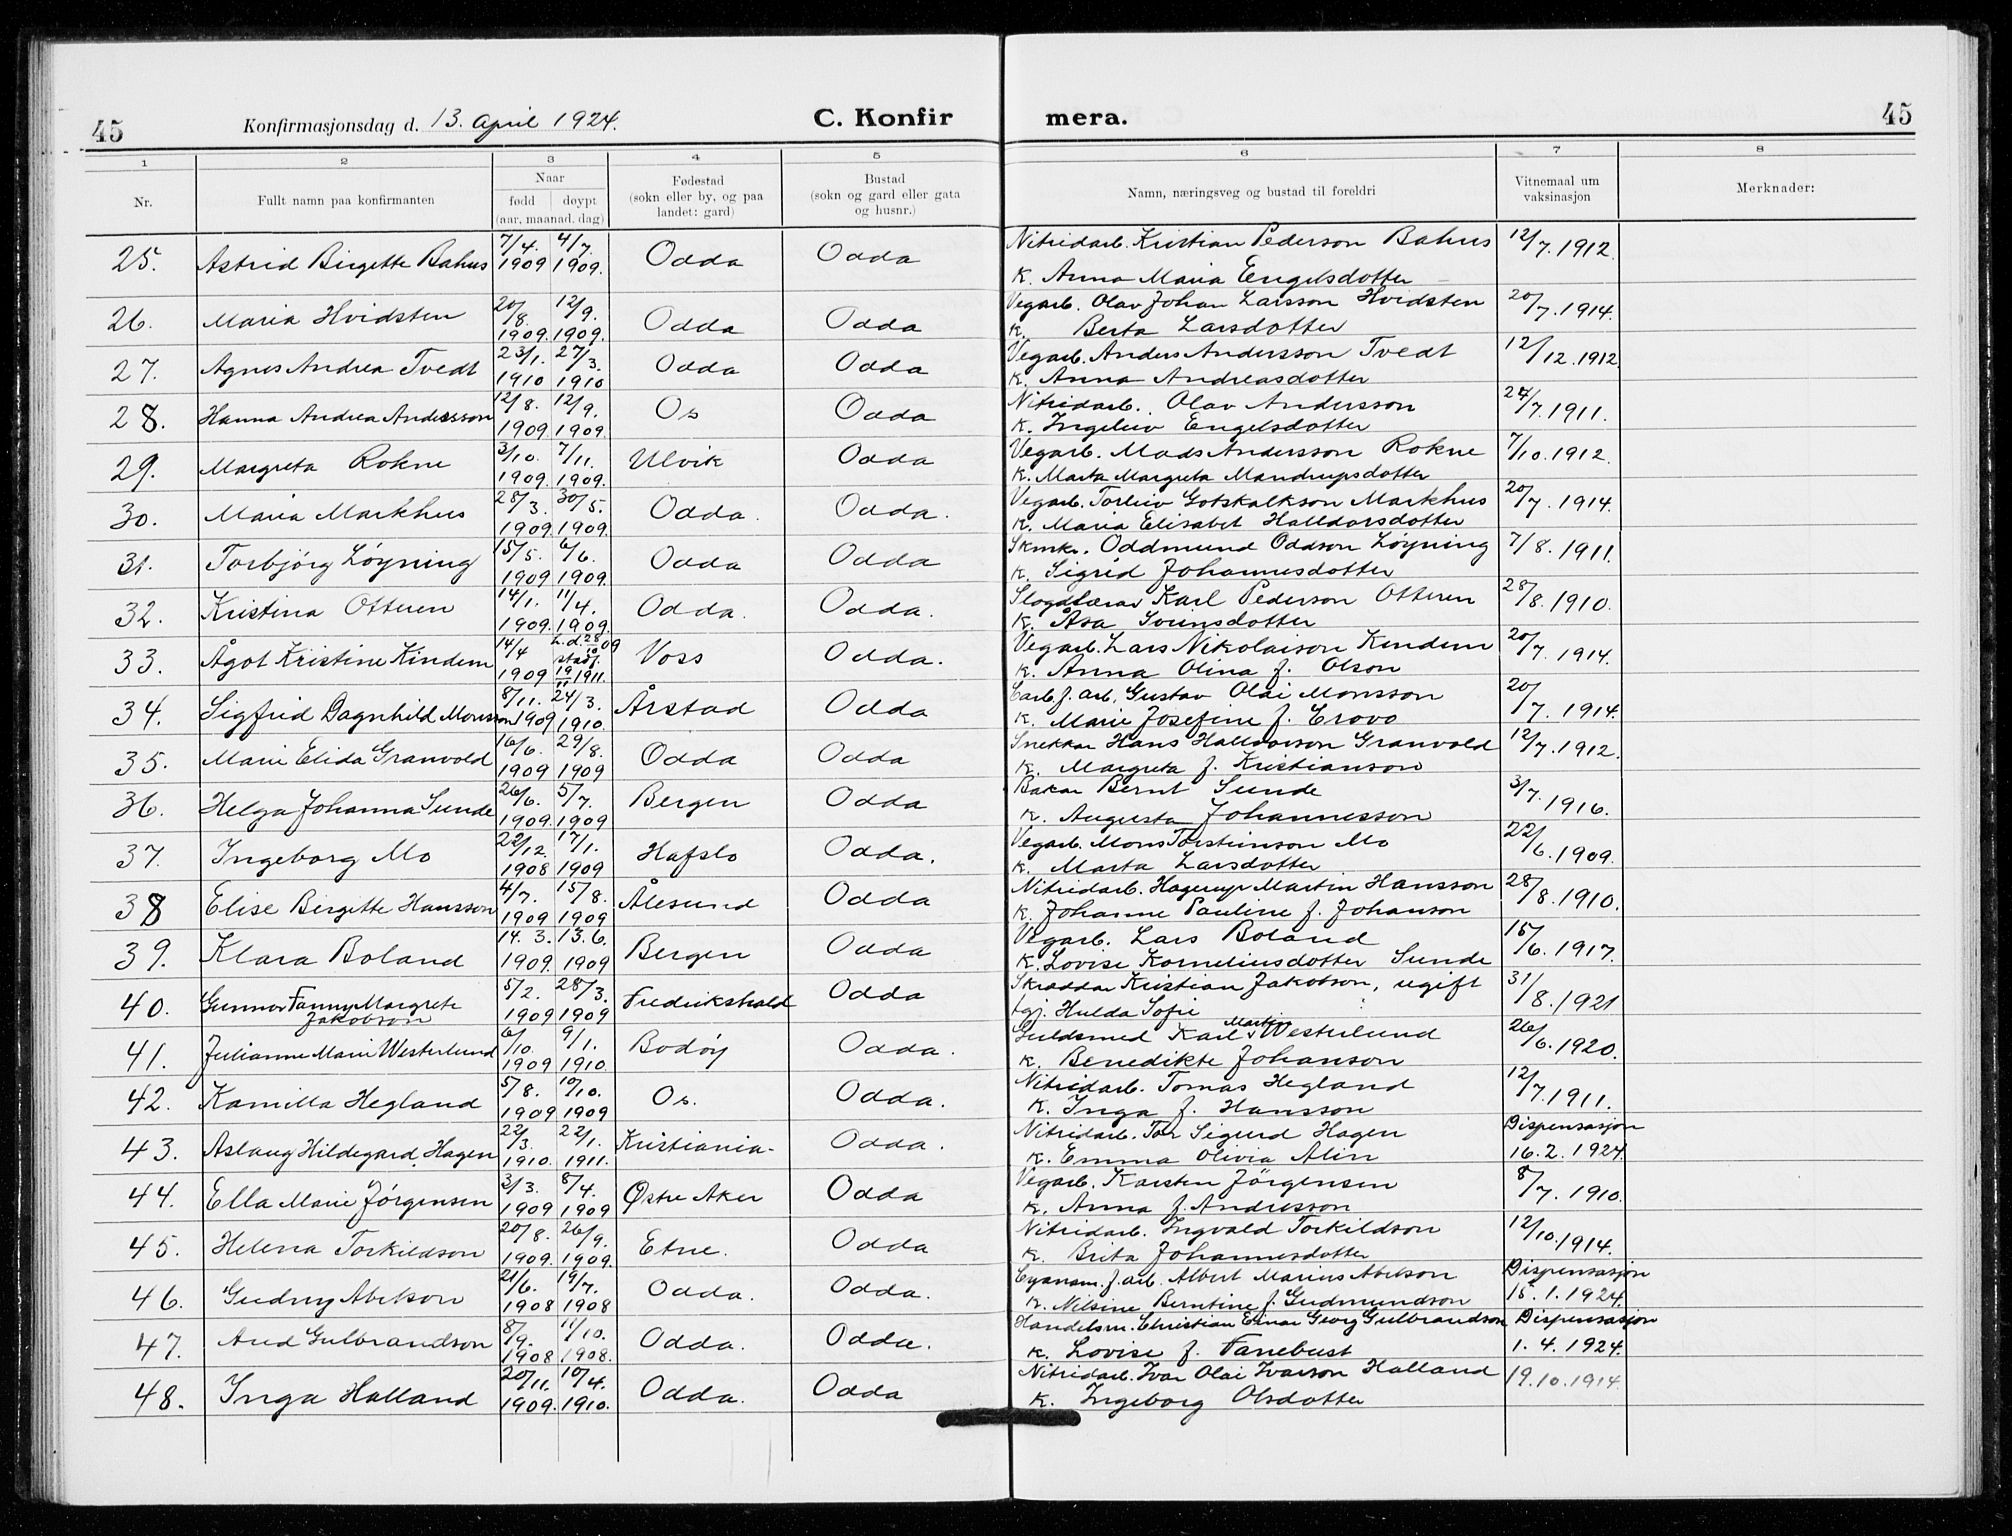 45 Konfirmasjonsdag d. 13. april 1924. C. Konfir mera. 45
1 2 3 4 5 6 7 8
Nr. Fullt namn paa konfirmanten Naar fødd døypt (aar, maanad, dag) Fødestad (sokn eller by, og paa landet: gard) Bustad (sokn og gard eller gata og husnr.) Namn, næringsveg og bustad til foreldri Vitnemaal um vaksinasjon Merknader:
25. Astrid Birgette Bahus 7/4. 1909 4/7. 1909. Odda Odda Nitridarb. Kristian Pederson Bahus 12/7. 1912.
k. Anna Maria Engelsdotter
26. Maria Hvidsten 20/8. 1909. 12/9. 1909. Odda Odda Vegarb. Olav Johan Larsson Hvidsten 20/7. 1914.
k. Berta Larsdotter
27. Agnes Andrea Tvedt 23/1. 1910 27/3. 1910 Odda Odda Vegarb. Anders Andersson Tvedt 12/12. 1912
k. Anna Andreasdotter
28. Hanna Andrea Andersson 12/8. 1909. 12/9. 1909. Os Odda Nitridarb. Olav Andersson 24/7. 1911.
k. Ingeleiv Engelsdotter
29. Margreta Rokne 3/10. 1909. 7/11. 1909. Ulvik Odda Vegarb. Mads Andersson Rokne 7/10. 1912.
k. Marta Margreta Mandrupsdotter
30. Maria Markhus 28/3. 1909. 30/5. 1909. Odda. Odda. Vegarb. Torleiv Gotskalkson Markhus 20/7. 1914.
k. Maria Elisabet Halldorsdotter
31. Torbjørg Løyning 15/5. 1909 6/6. 1909. Odda Odda Skmk. Oddmund Oddson Løyning 7/8. 1911.
k. Sigrid Johannesdotter
32. Kristina Otteren 14/1. 1909. 11/4. 1909. Odda. Odda. Slogdlærar Karl Pederson Otteren 28/8. 1910.
k. Åsa Sveinsdotter
33. Ågot Kristine Kindem 14/4 1909 h.d. 28/10 09 stadf. 19/11 1911. Voss Odda. Vegarb. Lars Nikolaison Kindem 20/7. 1914.
k. Anna Olina f. Olson
34. Sigfrid Dagnhild Monsson 8/11. 1909 24/3. 1910. Årstad Odda Carb.f. arb. Gustav Olai Monsson 20/7. 1914.
k. Marie Josefine f. Erovo
35. Marie Elida Granvold 16/6. 1909 29/8. 1909 Odda Odda Snekkar Hans Halldorson Granvold 12/7. 1912.
k. Margreta f. Kristianson
36. Helga Johanna Sunde 26/6. 1909. 5/7. 1909 Bergen Odda Bakar Bernt Sunde 3/7. 1916.
k. Augusta Johannesson
37. Ingeborg Mo 22/12. 1908 17/1. 1909 Hafslo Odda. Vegarb. Mons Torsteinson Mo 22/6. 1909.
k. Marta Larsdotter
38 Elise Birgitte Hansson 4/7. 1909 15/8. 1909 Ålesund Odda Nitridarb. Hagerup Martin Hansson 28/8. 1910.
k. Johanne Pauline f. Johanson
39. Klara Boland 14. 3. 1909. 13. 6. 1909 Bergen Odda Vegarb. Lars Boland 15/6. 1917.
k. Lovise Korneliusdotter Sunde
40. Gunnor Fanny Margrete Jakobson 5/2. 1909 28/3. 1909 Fredrikshald Odda Skraddar Kristian Jakobson, ugift 31/8. 1921
tgj. Hulda Sofie
41. Julianne Marie Westerlund 6/10. 1909 9/1. 1910 Bodøy Odda. Guldsmed Karl Martin Westerlund 26/6. 1920.
k. Benedikte Johanson
42. Kamilla Hegland 5/8. 1909 10/10. 1909 Os. Odda. Nitridarb. Tomas Hegland 12/7. 1911.
k. Inga f. Hansson
43. Aslaug Hildegard Hagen 22/3. 1910. 22/1. 1911. Kristiania. Odda. Nitridarb. Tor Sigurd Hagen Dispensasjon
k. Emma Olivia Alin 16. 2. 1924.
44. Ella Marie Jörgensen 3/3. 1909 8/4. 1909 Østre Aker Odda Vegarb. Karsten Jörgensen 8/7. 1910.
k. Anna f. Andresson
45. Helena Torkildson 20/8. 1909. 26/9. 1909. Etne. Odda Nitridarb. Ingvald Torkildson 12/10. 1914.
k. Brita Johannesdotter
46. Gudny Abelson 21/6. 1908 19/7. 1908 Odda. Odda. Cyanam. f. arb. Albert Marius Abelson Dispensasjon
k. Nilsine Berntine f. Gudmundson 15. 1. 1924.
47. Aud Gulbrandson 8/9. 1908 11/10. 1908. Odda. Odda. Handelsm. Christian Einar Georg Gulbrandson Dispensasjon
k. Lovise f. Fanebust 1. 4. 1924.
48. Inga Halland 20/11. 1909. 10/4. 1910. Odda. Odda Nitridarb. Ivar Olai Ivarson Halland 19. 10. 1914.
k. Ingeborg Olsdotter